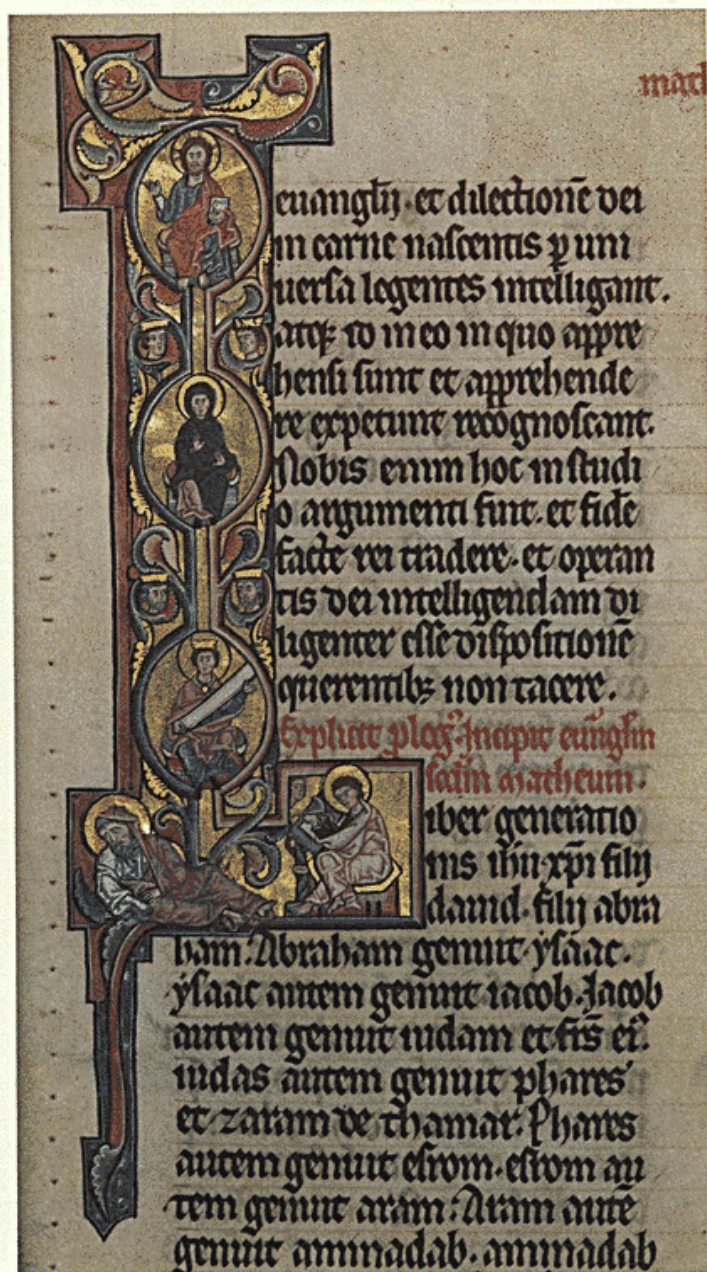 math
euanglij. et dilectionē dei
in carne nascentis p uni
uersa legentes intelligant.
atq; id in eo in quo appre
hensi sunt et apprehende
re expetunt recognoscant.
Nobis enim hoc in studi
o argumenti fuit. et fidē
facte rei tradere. et operan
tis dei intelligendam di
ligenter esse dispositionē
querentib; non tacere.
Explicit plog9. Incipit euāglm
scdm matheum.
iber generatio
nis ihu xpi filij
dauid. filij abra
ham. Abraham genuit ysaac.
ysaac autem genuit iacob. Jacob
autem genuit iudam et frs ei9.
iudas autem genuit phares
et zaram de thamar. Phares
autem genuit esrom. esrom au
tem genuit aram. Aram autē
genuit aminadab. aminadab